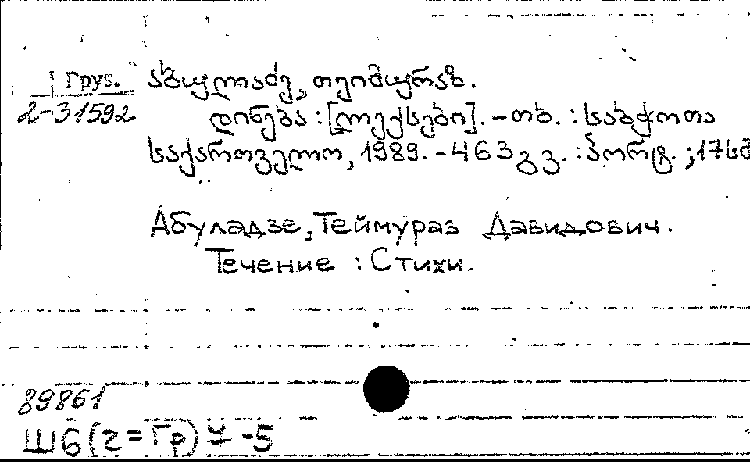 Груз.
აბულაძე, თეიმურაზ.
2-31592
დინება : [ლექსები]. – თბ. : საბჭოთა
საქართველო, 1989. – 463 გვ. : პორტ. ; 17სმ
Абуладзе, Теймураз Давидович.
Течение : Стихи.
89861
Ш6(2=Гр)7-5